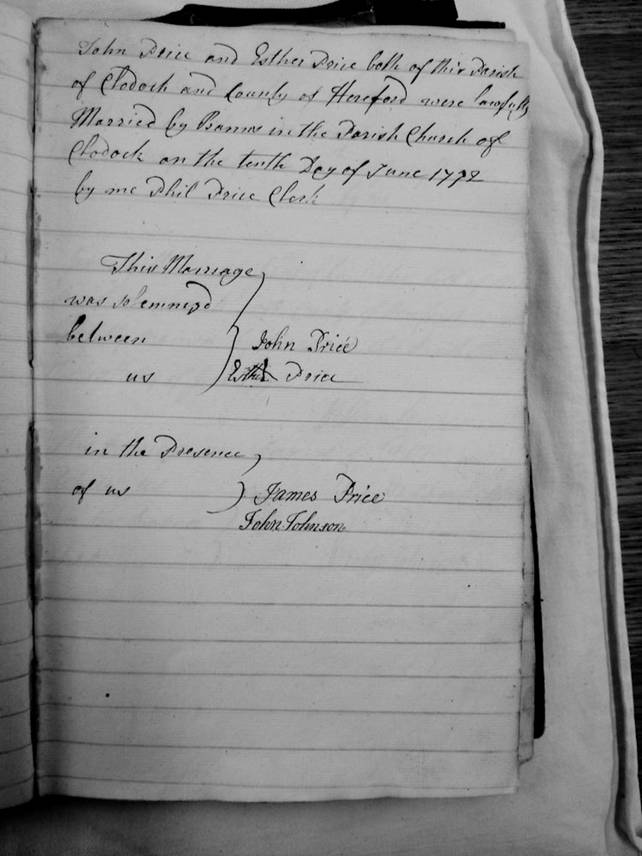 John Price and Esther Price both of this Parish
of Clodock and County of Hereford were lawfully
Married by Banns in the Parish Church of
Clodock on the tenth Day of June 1792
by me Phil Price Clerk
This Marriage
was solemnizd
between } John Price
us } Esther Price
in the Presence
of us } James Price
John Johnson